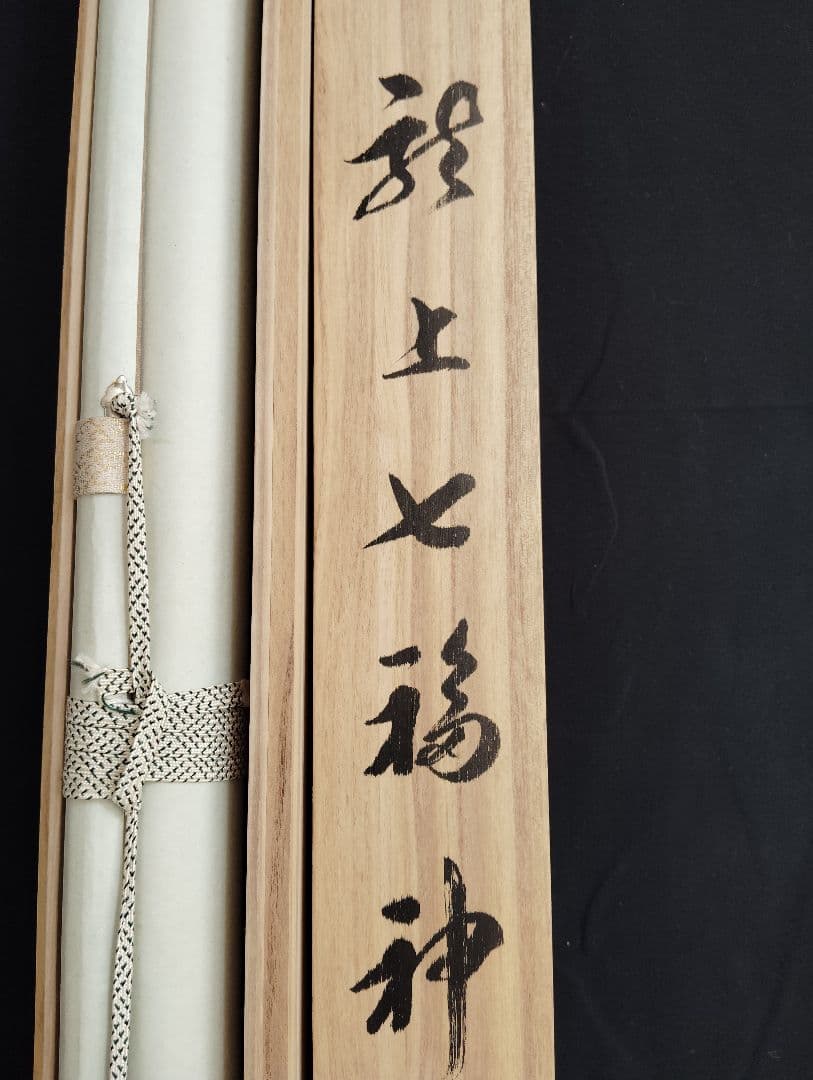 龍上七福神